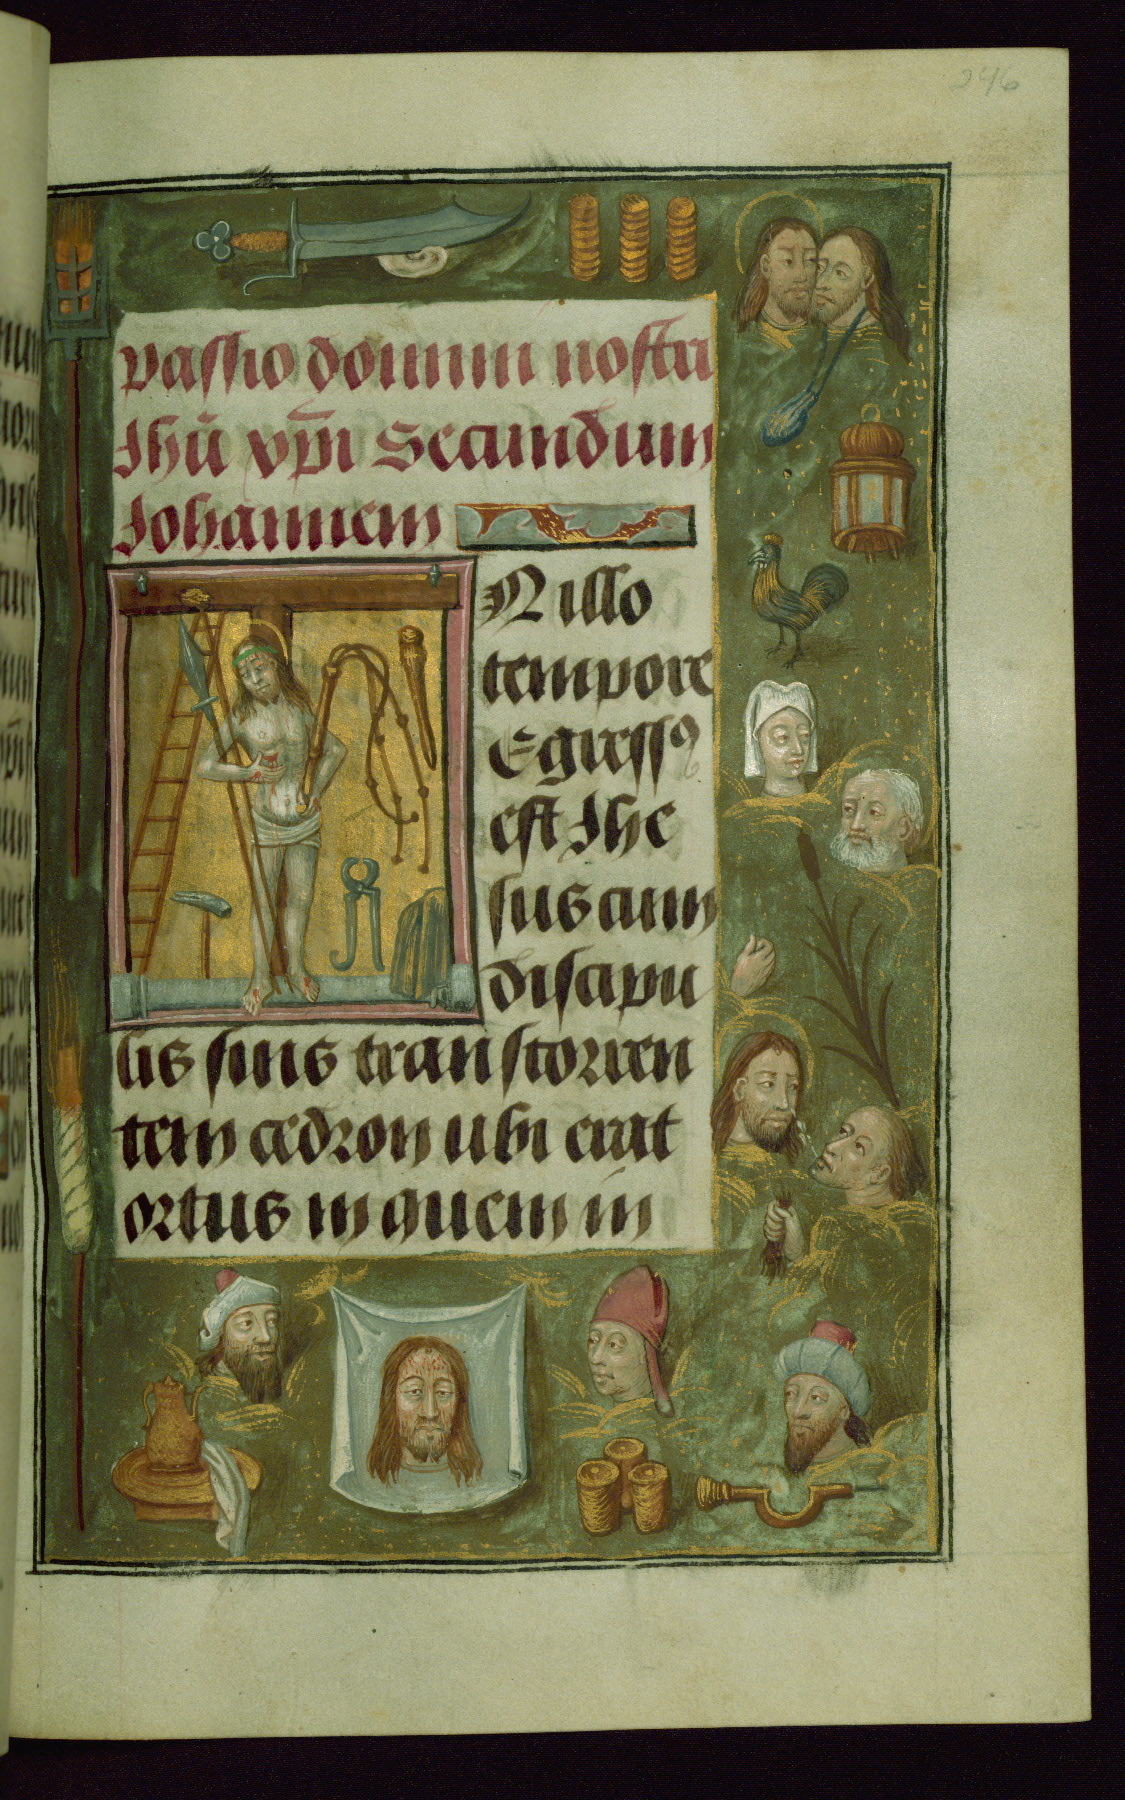 246
Passio domini nostri
Ihū xp̄i Secundum
Johannem
N illo
tempore
Egressꝰ
est Ihe
sus cum
discipu
lis suis trans torren
tem cedron ubi erat
ortus in quem in